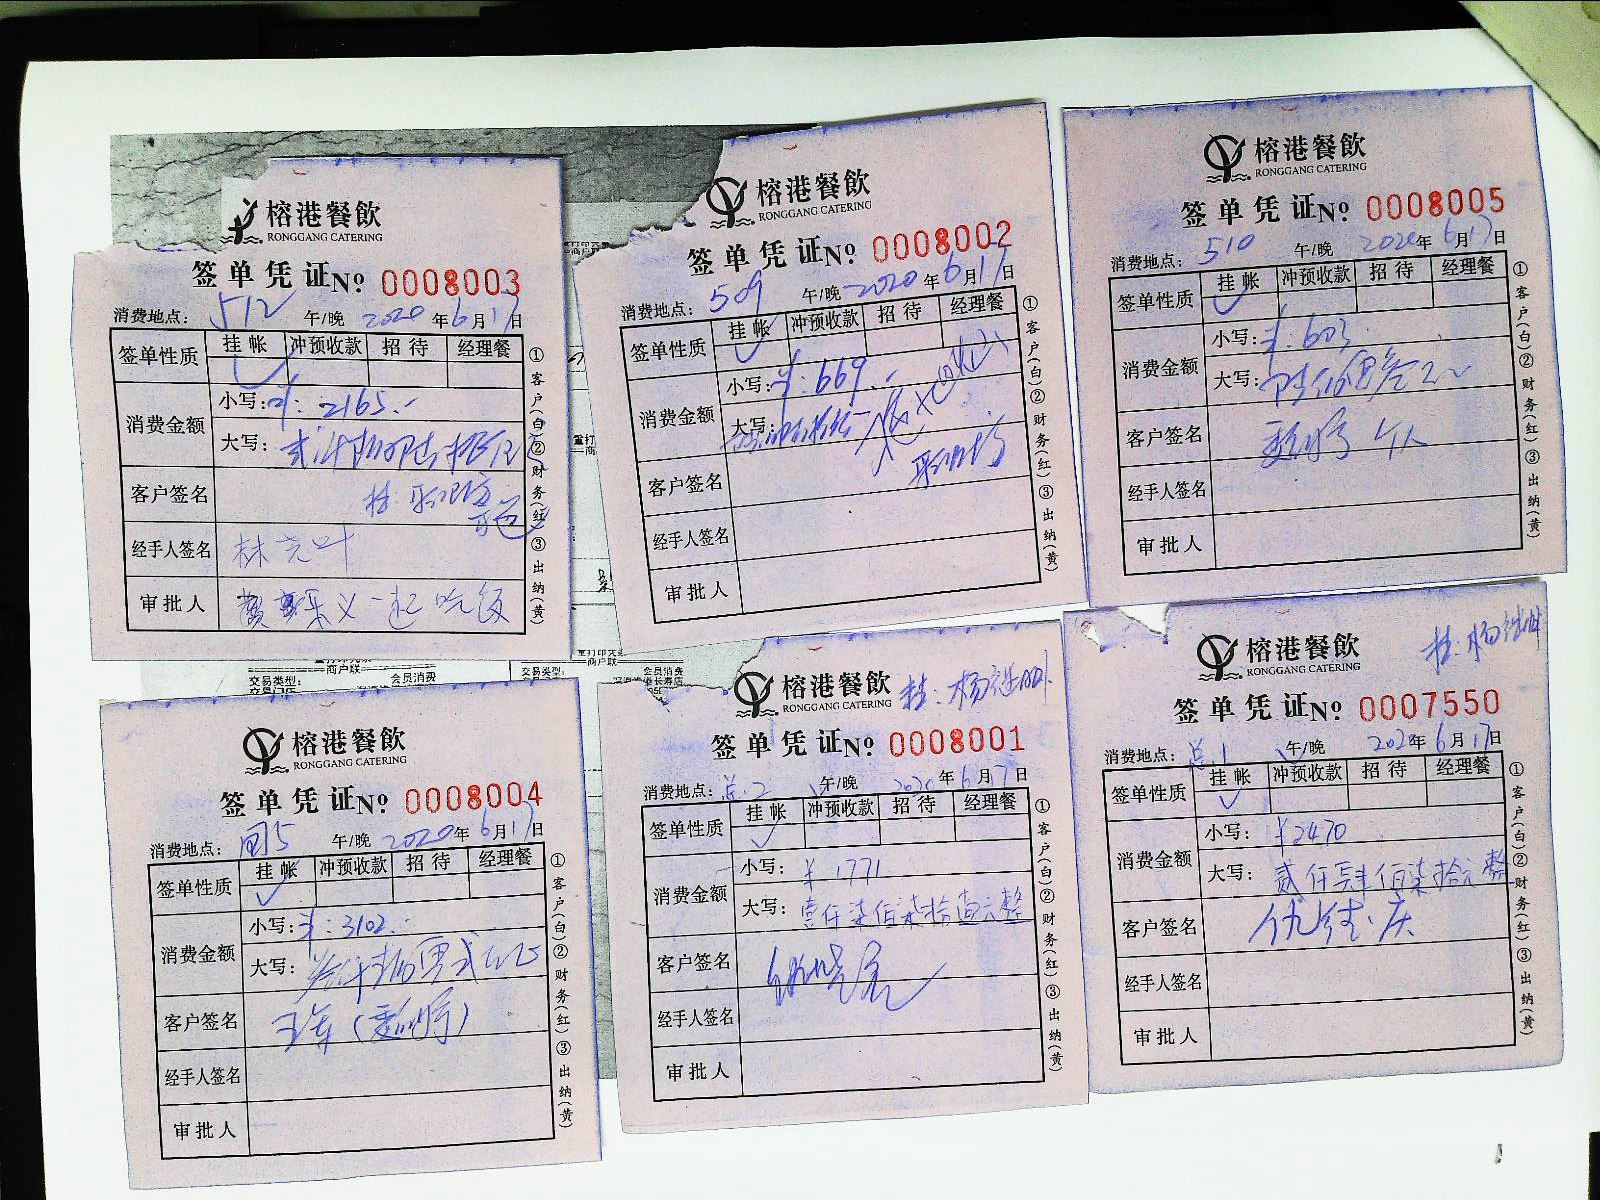 榕港餐飲
RONGGANG CATERING
签单凭证 № 0008003
消费地点: 512 午/晚 2020年6月17日
签单性质 挂帐 冲预收款 招待 经理餐
消费金额
小写: ¥: 2165.-
大写:
客户签名
经手人签名
审批人 一起吃饭
①客户(白)②财务(红)③出纳(黄)
榕港餐飲
RONGGANG CATERING
签单凭证 № 0008002
消费地点: 509 午/晚 2020年6月17日
签单性质 挂帐 冲预收款 招待 经理餐
消费金额
小写: ¥: 669.-
大写:
客户签名
经手人签名
审批人
①客户(白)②财务(红)③出纳(黄)
榕港餐飲
RONGGANG CATERING
签单凭证 № 0008005
消费地点: 510 午/晚 2020年6月17日
签单性质 挂帐 冲预收款 招待 经理餐
消费金额
小写: ¥: 603.
大写:
客户签名
经手人签名
审批人
①客户(白)②财务(红)③出纳(黄)
商户联
交易类型: 会员消费
交易类型:
榕港餐飲
RONGGANG CATERING
签单凭证 № 0008004
消费地点: 午/晚 2020年6月17日
签单性质 挂帐 冲预收款 招待 经理餐
消费金额
小写: ¥: 3102.-
大写:
客户签名
经手人签名
审批人
①客户(白)②财务(红)③出纳(黄)
榕港餐飲
RONGGANG CATERING
挂:
签单凭证 № 0008001
消费地点: 总.2 午/晚 2020年6月17日
签单性质 挂帐 冲预收款 招待 经理餐
消费金额
小写: ¥ 1771
大写: 壹仟柒佰柒拾壹元整
客户签名
经手人签名
审批人
①客户(白)②财务(红)③出纳(黄)
榕港餐飲
RONGGANG CATERING
挂:
签单凭证 № 0007550
消费地点: 总.1 午/晚 2020年6月17日
签单性质 挂帐 冲预收款 招待 经理餐
消费金额
小写: ¥2470
大写: 贰仟肆佰柒拾元整
客户签名
经手人签名
审批人
①客户(白)②财务(红)③出纳(黄)